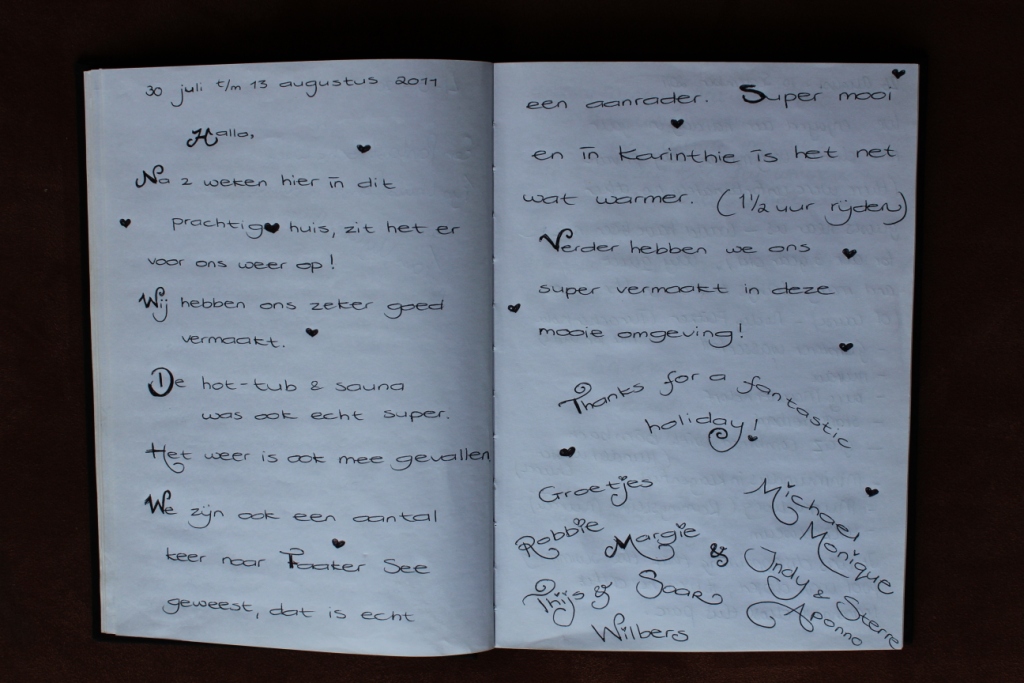 30 juli t/m 13 augustus 2011
Hallo,
Na 2 weken hier in dit
prachtig huis, zit het er
voor ons weer op!
Wij hebben ons zeker goed
vermaakt.
De hot-tub & sauna
was ook echt super.
Het weer is ook mee gevallen
We zijn ook een aantal
keer naar Faaker See
geweest, dat is echt
een aanrader. Super mooi
en in Karinthie is het net
wat warmer. (1 1/2 uur rijden)
Verder hebben we ons
super vermaakt in deze
mooie omgeving!
Thanks for a fantastic
holiday!
Groetjes
Robbie Margie &
Thijs & Saar
Wilbers
Michael
Monique
Indy & Sterre
Aponno